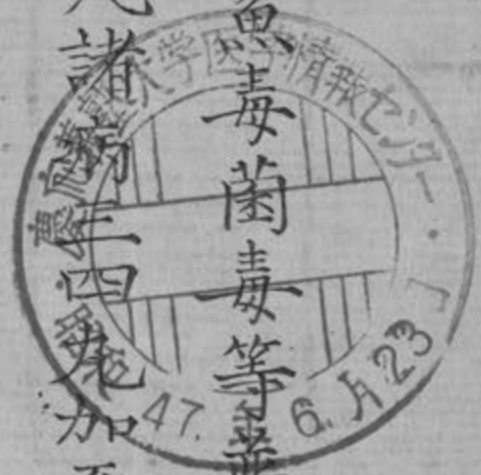 魚毒菌毒等並
諸病三四丸加
慶應義塾大学医学情報センター
47. 6. 月23